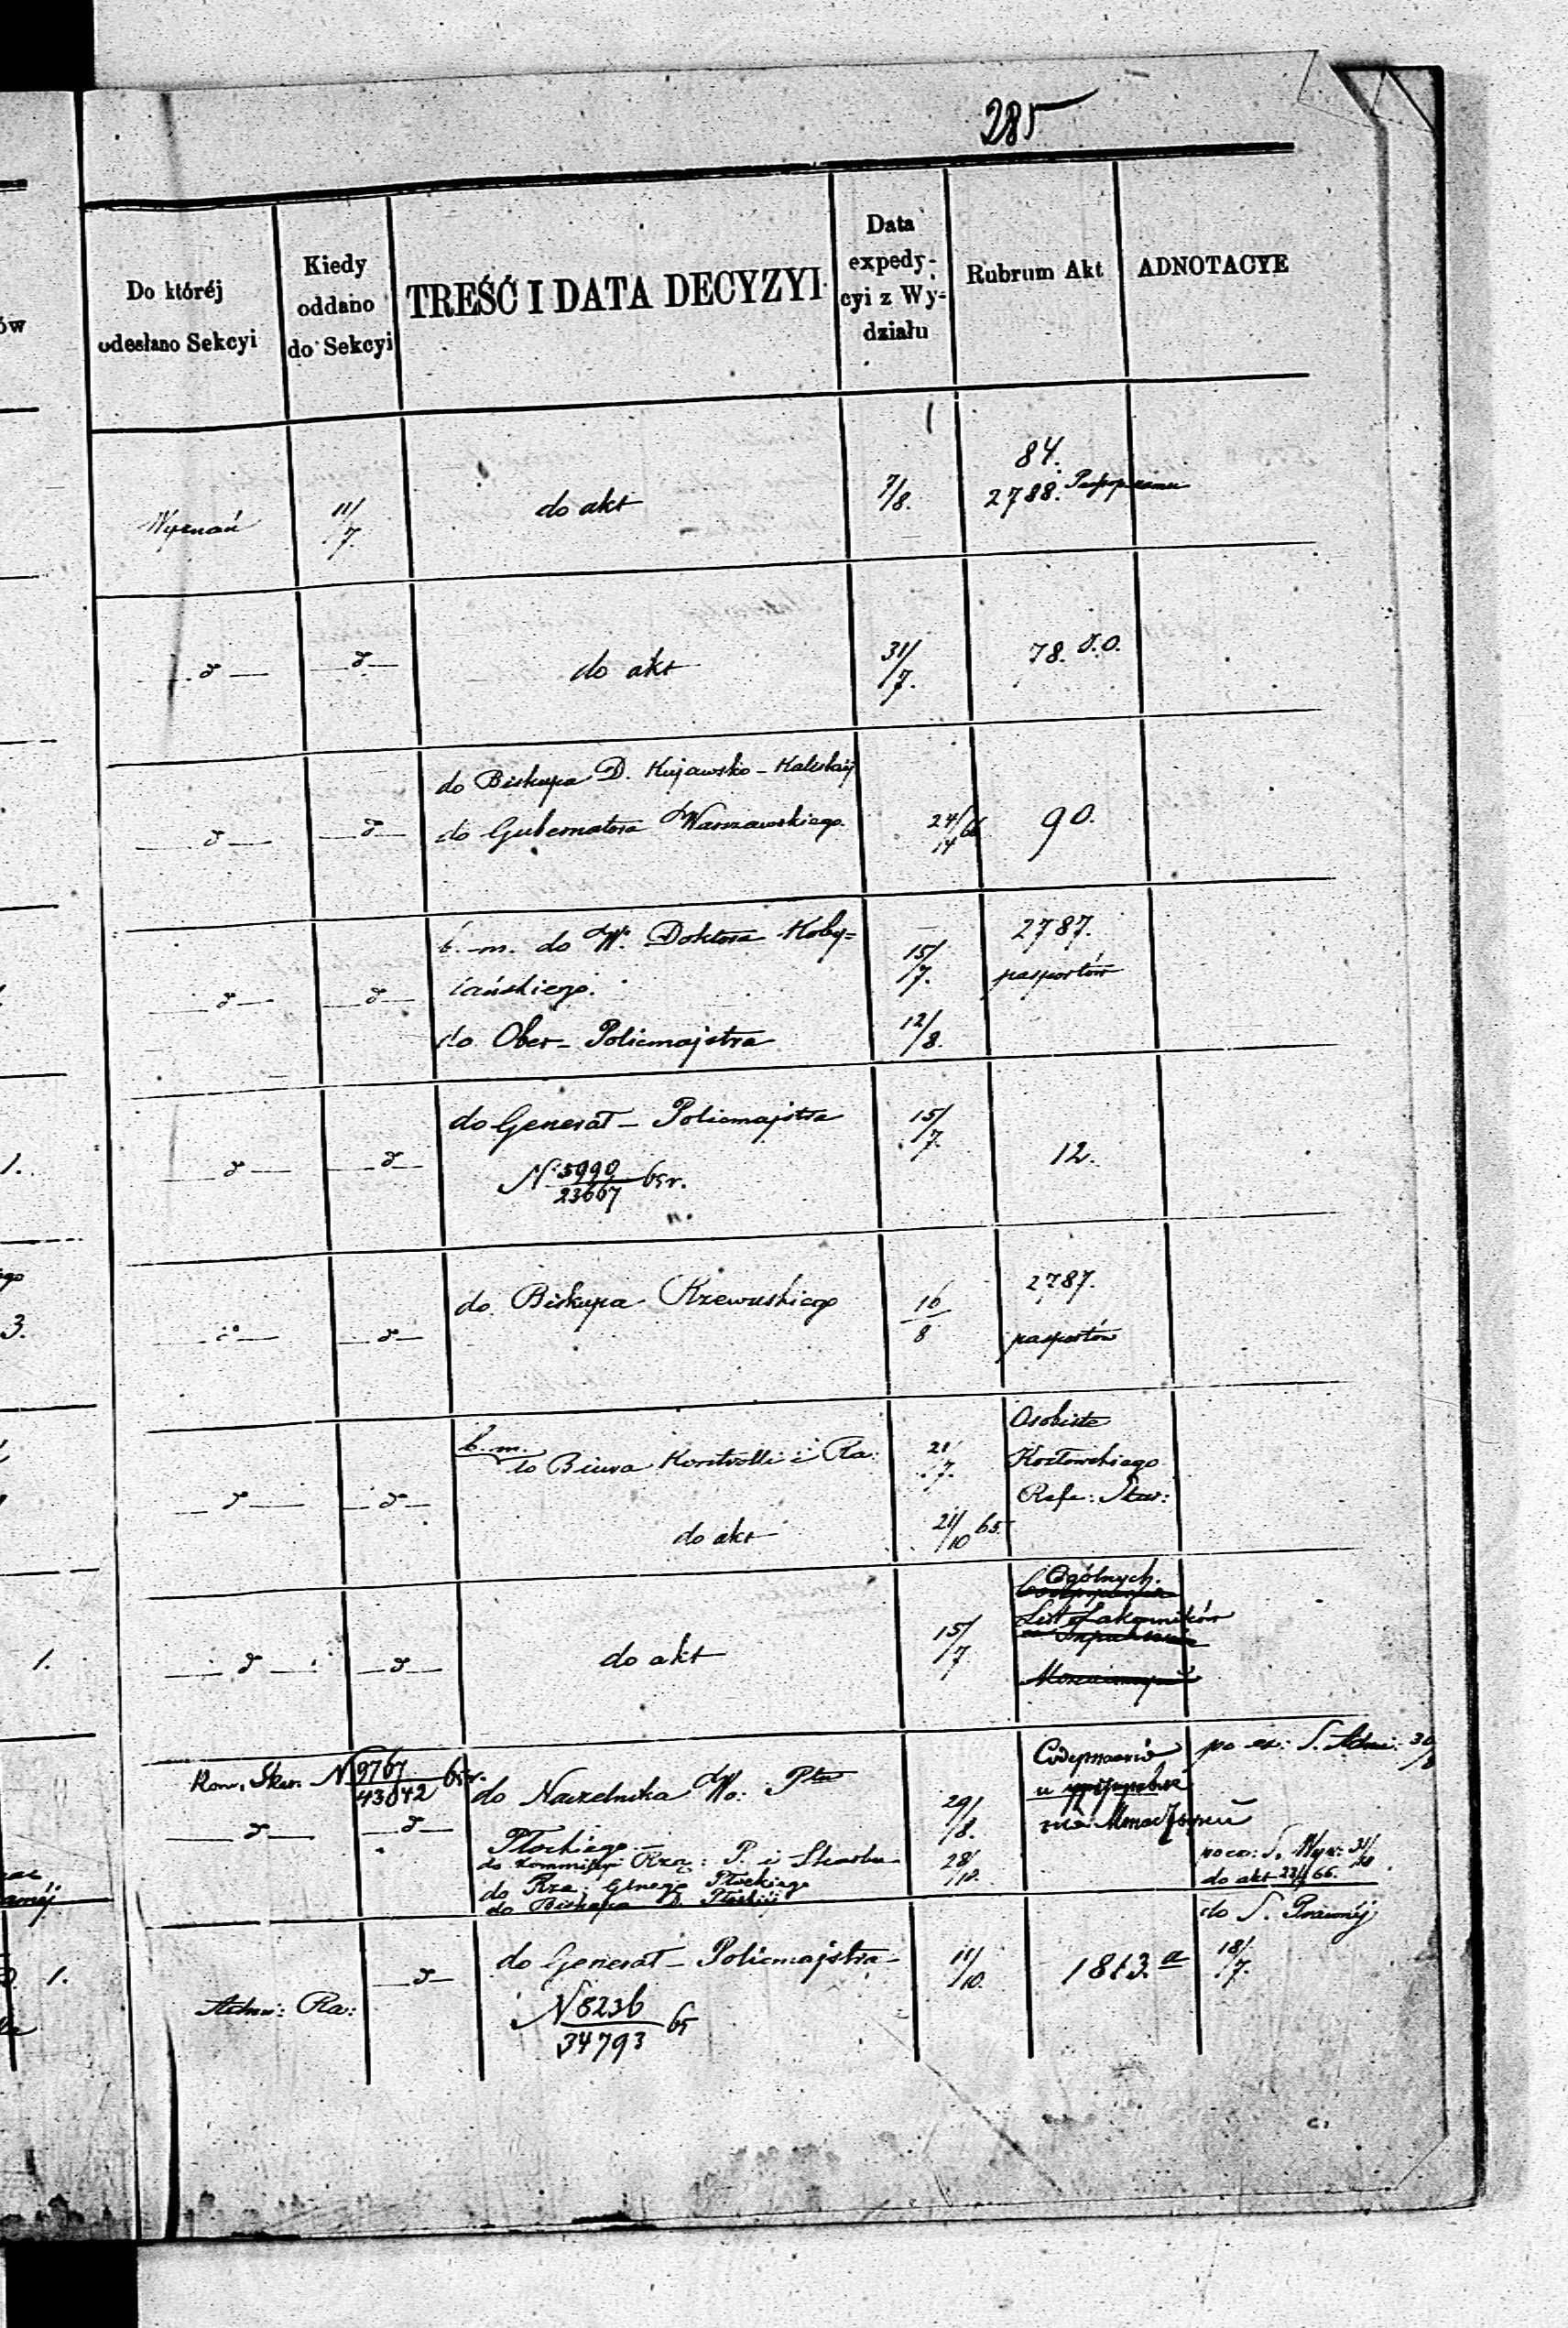 285
Do któréj
odesłano Sekcyi
Kiedy
oddano
do Sekcyi
TREŚĆ I DATA DECYZYI
Data
expedy-
cyi z Wy-
działu
Rubrum Akt
ADNOTACYE
Wyznań
11/7.
do akt
7/8.
84.
2788.
do akt
31/7.
78. D.O.
do Biskupa D. Kujawsko-Kaliskiéj
do Gubernatora Warszawskiego.
90.
b. m. do W. Doktora Koby=
lańskiego.
do Ober-Policmajstra
15/7.
12/8.
2787.
pasportów
do Generał-Policmajstra
N 5990/23667 65r.
15/7.
12.
do Biskupa Rzewuskiego
16/8
2787.
pasportów
b. m.
do Biura Kontrolli i Ra:
do akt
21/7.
21/10 65.
Osobiste
Kozłowskiego
Refe: Star:
do akt
15/7
Ogólnych.
List Zakonników
N 9767/43042 65r.
do Naczelnika Wo: Pta
Płockiego
do Kommissyi Rzą: P. i Skarbu
do Rzą: Glnego Płockiego
do Biskupa D. Płockiéj
29/8.
28/12.
po ex: S. Adm: 30/8
po ex: S. Wyz: 31/
do akt 22/1 66.
Admi: Ra:
do Generał-Policmajstra
N 8236/34793 65
11/10.
1813 a
do S. Prawnéj
18/7.